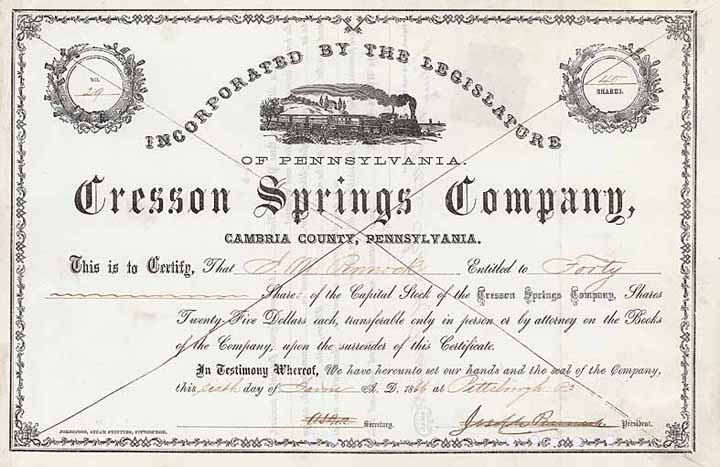 INCORPORATED BY THE LEGISLATURE
NO.
29
40
SHARES.
OF PENNSYLVANIA.
Cresson Springs Company,
CAMBRIA COUNTY, PENNSYLVANIA.
This is to Certify, That J. M. Pennock Entitled to Forty
Shares of the Capital Stock of the Cresson Springs Company, Shares
Twenty-Five Dollars each, transferable only in person or by attorney on the Books
of the Company, upon the surrender of this Certificate.
In Testimony Whereof, We have hereunto set our hands and the seal of the Company,
this sixth day of June A. D. 1866 at Pittsburgh Pa
Secretary. Joseph Pennock President.
JOHNSTONS, STEAM PRINTERS, PITTSBURGH.